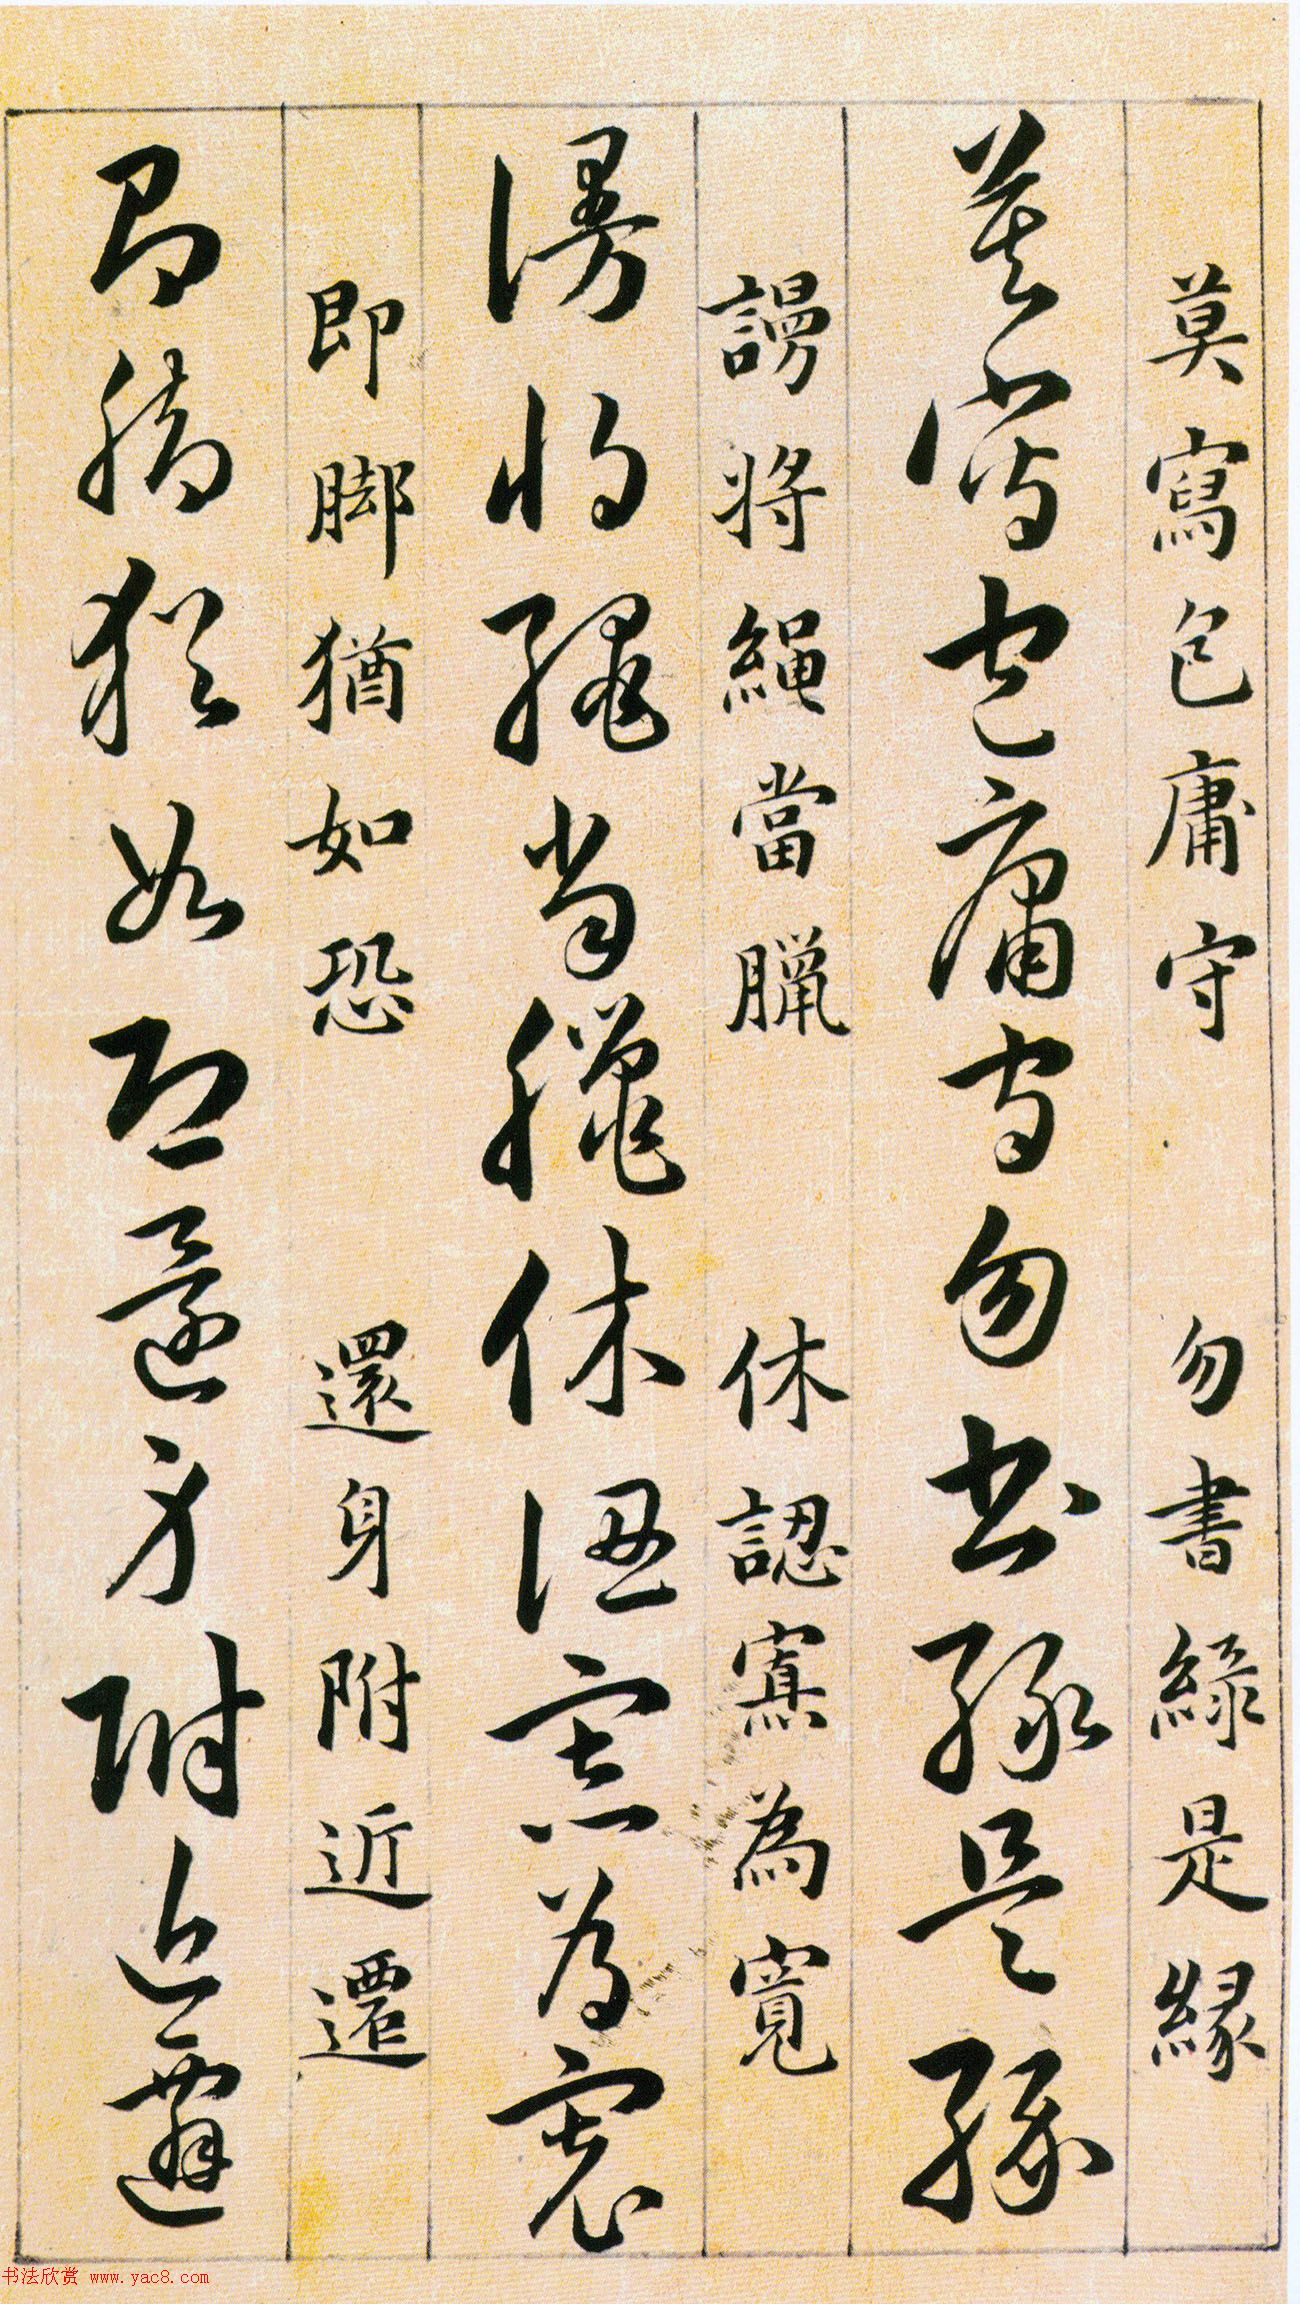 莫寫包庸守 勿書綠是縁
莫寫包庸守勿書綠是縁
謾將繩當臘 休認寡為寬
謾將繩當臘休認寡為寬
即脚猶如恐 還身附近遷
即脚猶如恐還身附近遷
书法欣赏 www.yac8.com